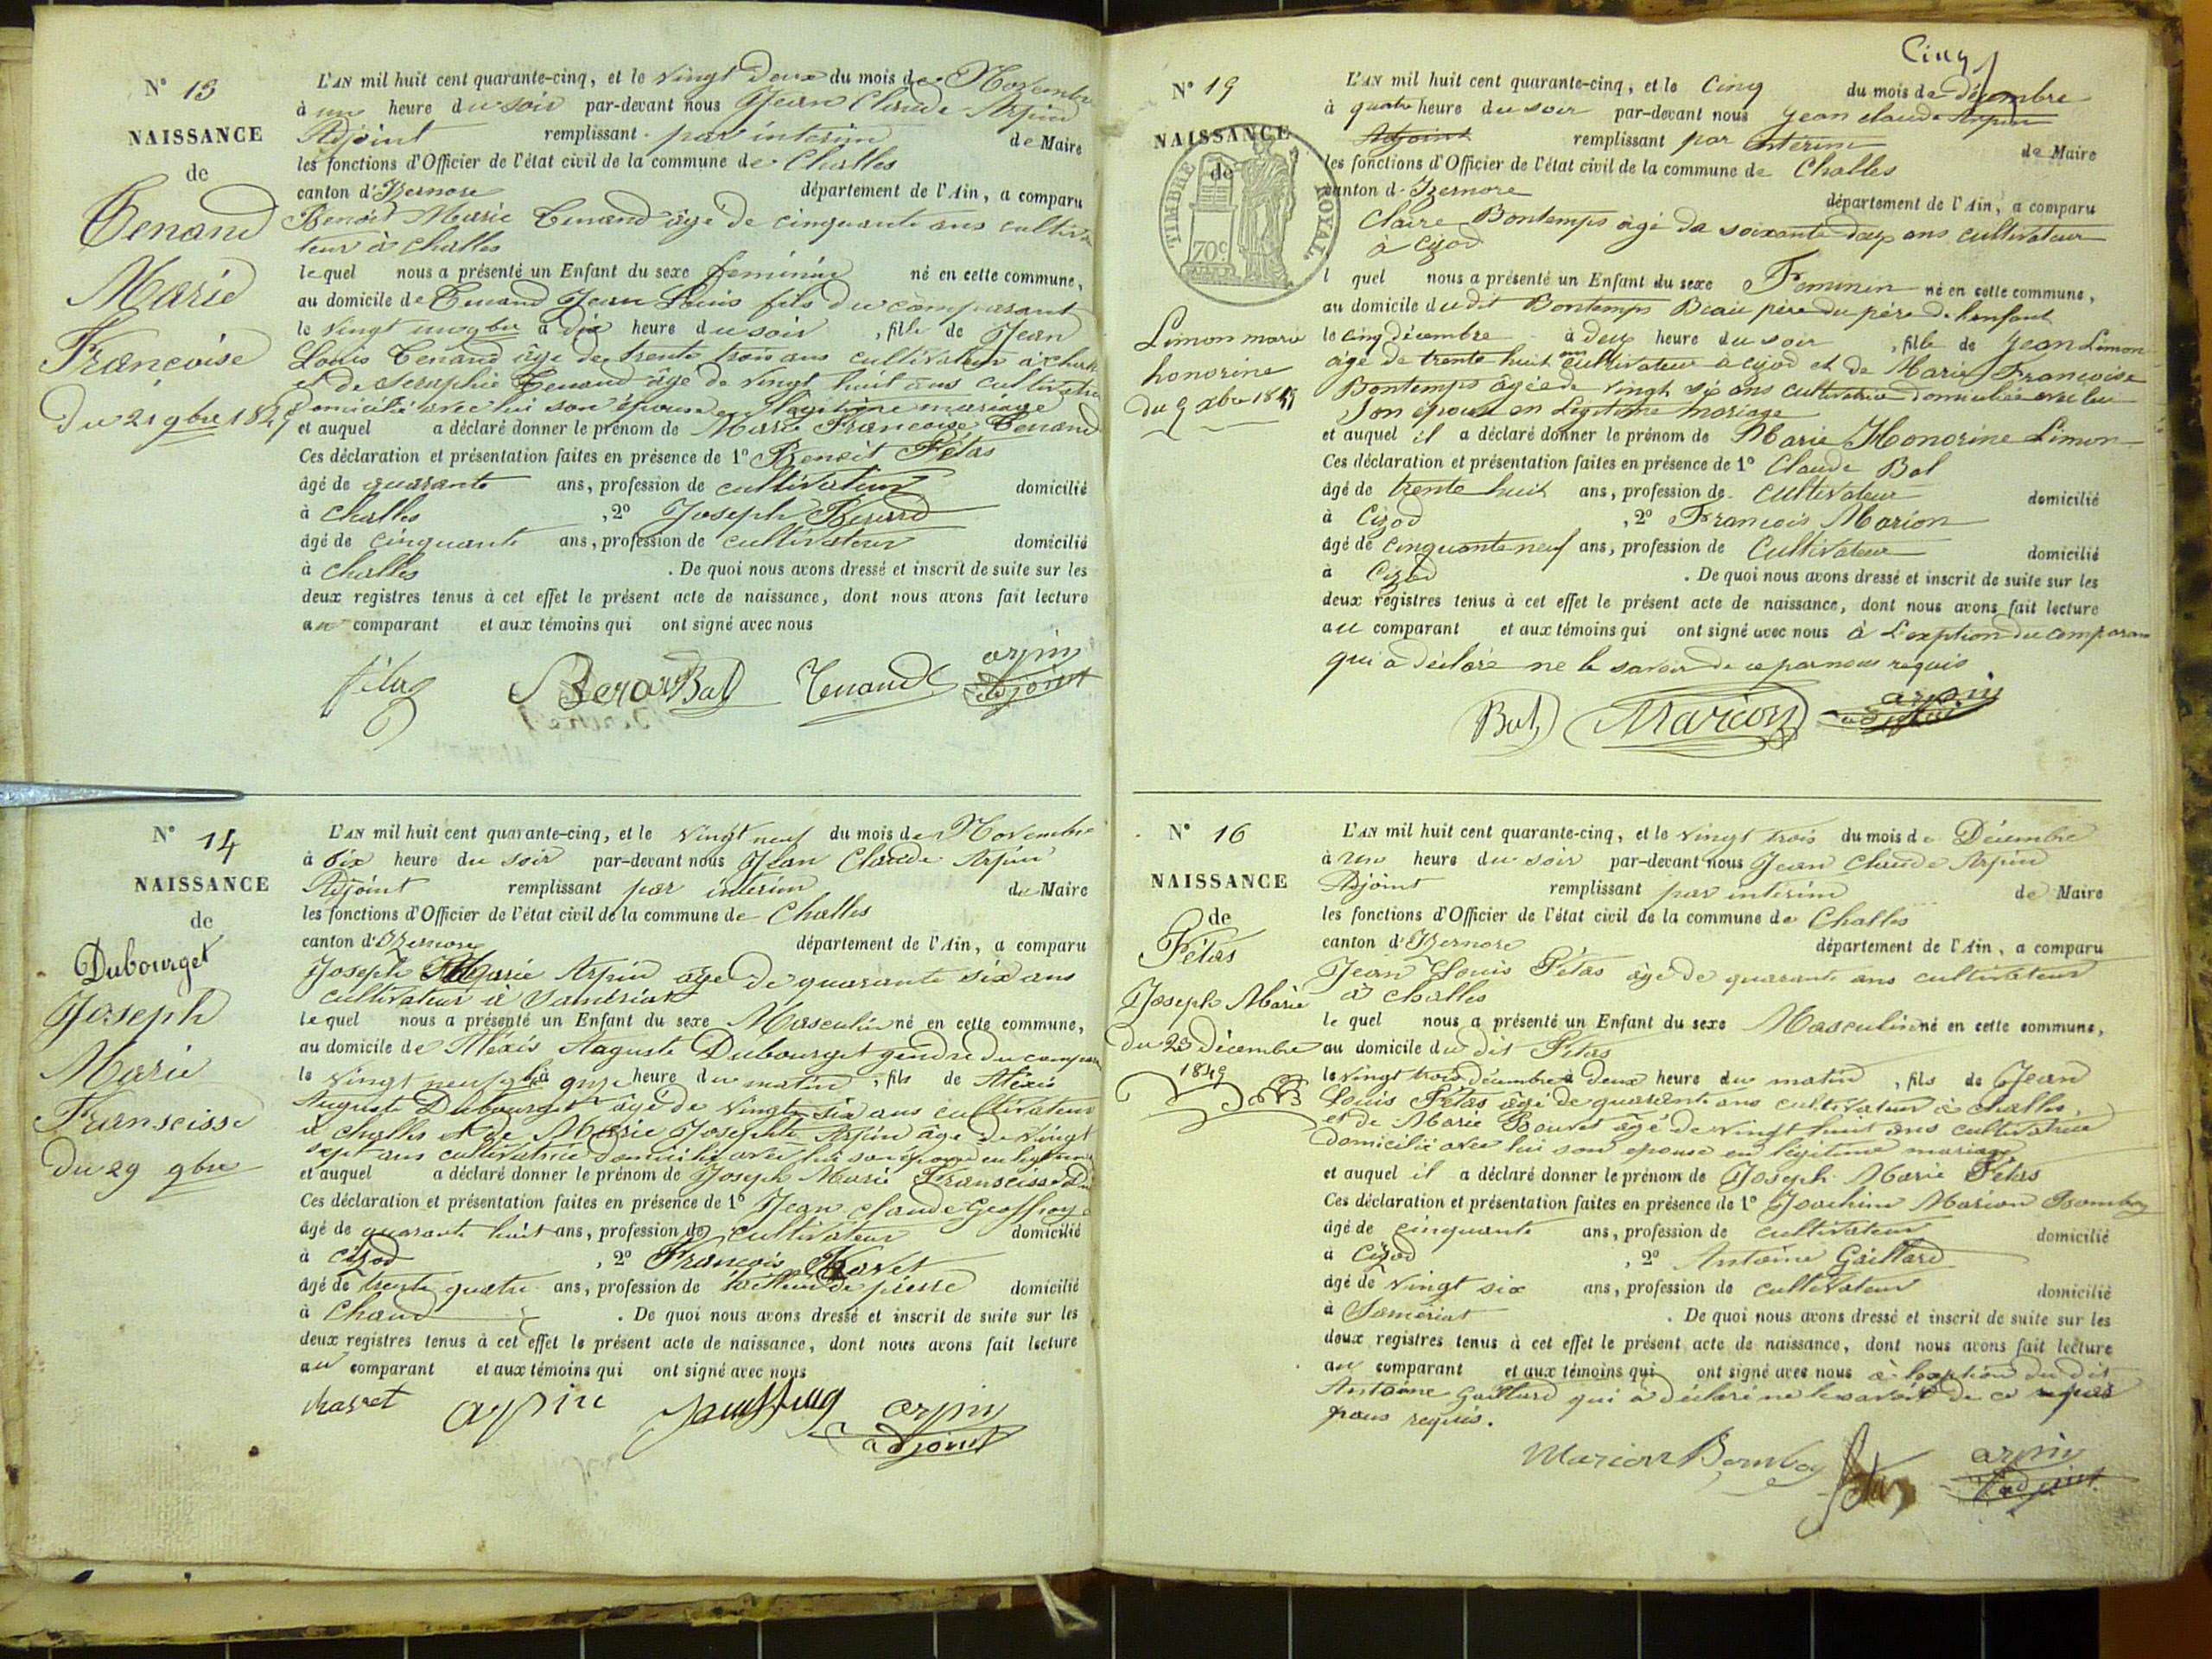 N° 13
NAISSANCE
de
Tenand
Marie
Françoise
Du 21 9bre 1845
L'AN mil huit cent quarante-cinq, et le vingt deux du mois de Novembre
à une heure du soir par-devant nous Jean Claude Arpin
Adjoint remplissant par interim de Maire
les fonctions d'Officier de l'état civil de la commune de Challes
canton d'Izernore département de l'Ain, a comparu
Benoit Marie Tenand âgé de cinquante ans cultiva
teur à Challes
lequel nous a présenté un Enfant du sexe feminin né en cette commune,
au domicile de Tenand Jean Louis fils du comparant
le vingt un 9bre à dix heure du soir, fille de Jean
Louis Tenand âgé de trente trois ans cultivateur à chall
et de Seraphie Tenand âgé de vingt huit ans cultivatrice
domicilié avec lui son épouse en légitime mariage
et auquel a déclaré donner le prénom de Marie Françoise Tenand
Ces déclaration et présentation faites en présence de 1° Benoit Pétas
âgé de quarante ans, profession de cultivateur domicilié
à Challes, 2° Joseph Berard
âgé de cinquante ans, profession de cultivateur domicilié
à Challes. De quoi nous avons dressé et inscrit de suite sur les
deux registres tenus à cet effet le présent acte de naissance, dont nous avons fait lecture
au comparant et aux témoins qui ont signé avec nous
Tenand arpin
adjoint
N° 14
NAISSANCE
de
Dubourget
Joseph
Marie
Franscisse
Du 29 9bre
L'AN mil huit cent quarante-cinq, et le vingt neuf du mois de Novembre
à six heure du soir par-devant nous Jean Claude Arpin
Adjoint remplissant par interim de Maire
les fonctions d'Officier de l'état civil de la commune de Challes
canton d'Izernore département de l'Ain, a comparu
Joseph Marie Arpin âgé de quarante six ans
cultivateur à Samériat
lequel nous a présenté un Enfant du sexe Masculin né en cette commune,
au domicile de Alexis Auguste Dubourget gendre du compara
le vingt neuf 9bre à onze heure du matin, fils de Alexis
Auguste Dubourget âgé de vingt six ans cultivateur
à challes et de Marie Josephte Arpin âgé de vingt
sept ans cultivatrice domicilié avec lui son épouse en légitime
et auquel a déclaré donner le prénom de Joseph Marie Franscisse Du
Ces déclaration et présentation faites en présence de 1° Jean claude Geoffroy
âgé de quarante huit ans, profession de cultivateur domicilié
à Cizod, 2° François Chavet
âgé de trente quatre ans, profession de tailleur de pierre domicilié
à Chaud. De quoi nous avons dressé et inscrit de suite sur les
deux registres tenus à cet effet le présent acte de naissance, dont nous avons fait lecture
au comparant et aux témoins qui ont signé avec nous
arpin arpin
adjoint
Cinq
N° 19
NAISSANCE
de
TIMBRE ROYAL
70c
Limon marie
honorine
du 5 xbre 1845
L'AN mil huit cent quarante-cinq, et le Cinq du mois de décembre
à quatre heure du soir par-devant nous jean claude Arpin
Adjoint remplissant par interim de Maire
les fonctions d'Officier de l'état civil de la commune de Challes
canton d'Izernore département de l'Ain, a comparu
Claire Bontemps agé de soixante deux ans cultivateur
à cizod
lquel nous a présenté un Enfant du sexe Feminin né en cette commune,
au domicile du dit Bontemps Beau père du père de l'enfant
le cinq décembre à deux heure du soir, fille de Jean Limon
âgé de trente huit ans cultivateur à cizod et de Marie Françoise
Bontemps âgée de vingt six ans cultivatrice domiciliée avec lui
Son épouse en Légitime mariage
et auquel il a déclaré donner le prénom de Marie Honorine Limon
Ces déclaration et présentation faites en présence de 1° Claude Bol
âgé de trente huit ans, profession de cultivateur domicilié
à Cizod, 2° François Marion
âgé de cinquante neuf ans, profession de Cultivateur domicilié
à Cizod. De quoi nous avons dressé et inscrit de suite sur les
deux registres tenus à cet effet le présent acte de naissance, dont nous avons fait lecture
au comparant et aux témoins qui ont signé avec nous à L'exption du comparant
qui a déclaré ne le savoir de ce par nous requis
Bol Marion arpin
adjoint
N° 16
NAISSANCE
de
Pétas
Joseph Marie
du 23 Décembre
1845
L'AN mil huit cent quarante-cinq, et le vingt trois du mois de Décembre
à une heure du soir par-devant nous Jean Claude Arpin
Adjoint remplissant par interim de Maire
les fonctions d'Officier de l'état civil de la commune de Challes
canton d'Izernore département de l'Ain, a comparu
Jean Louis Pétas âgé de quarante ans cultivateur
à challes
lequel nous a présenté un Enfant du sexe Masculin né en cette commune,
au domicile du dit Pétas
le vingt trois décembre à deux heure du matin, fils de Jean
Louis Pétas âgé de quarante ans cultivateur à challes,
et de Marie Bouvet âgé de vingt huit ans cultivatrice
domicilié avec lui son epouse en légitime mariage
et auquel il a déclaré donner le prénom de Joseph Marie Pétas
Ces déclaration et présentation faites en présence de 1° Joachim Marion Bomboy
âgé de cinquante ans, profession de cultivateur domicilié
à Cizod, 2° Antoine Gaillard
âgé de vingt six ans, profession de cultivateur domicilié
à Samériat. De quoi nous avons dressé et inscrit de suite sur les
deux registres tenus à cet effet le présent acte de naissance, dont nous avons fait lecture
au comparant et aux témoins qui ont signé avec nous à lexption du dit
Antoine Gaillard qui a déclaré ne le savoir de ce
nous requis.
Marion Bomboy arpin
adjoint